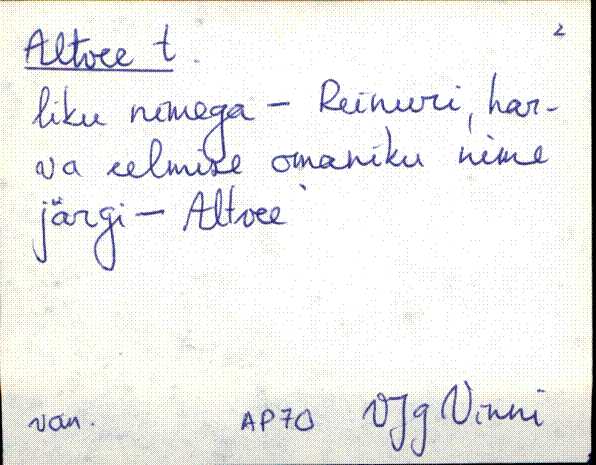 Altvee t. 2
liku nimega – Reinuri, har-
va eelmise omaniku nime
järgi – Altvee
van. AP70 VJg Vinni